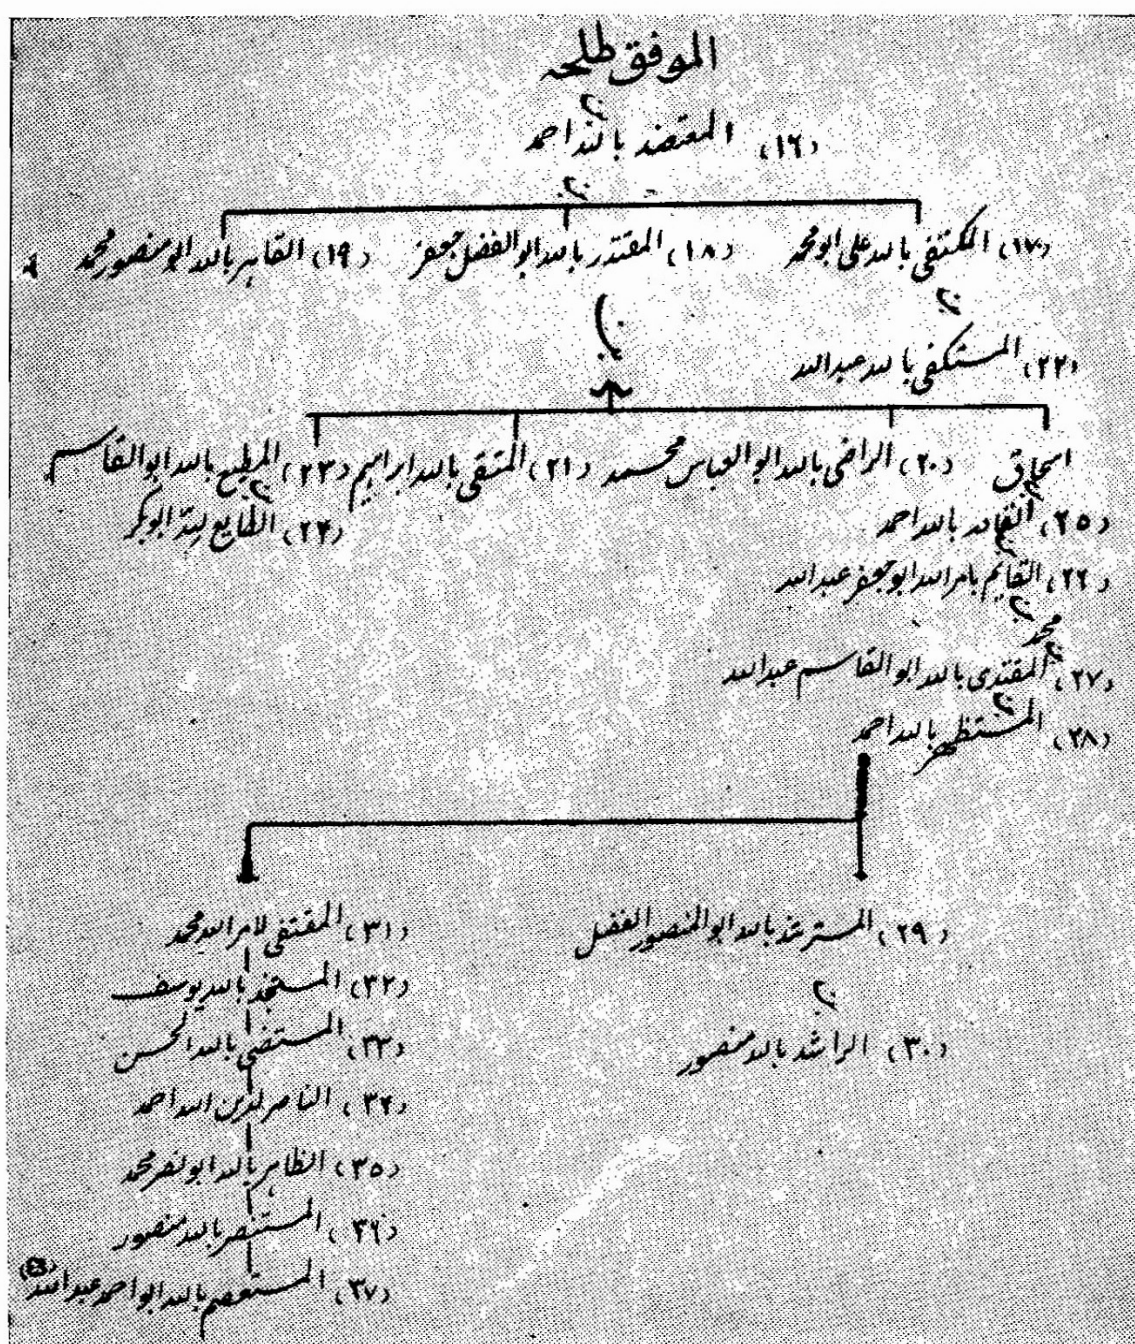 الموفق طلحہ
بن
(۱۶) المعتضد بالله احمد
بن
(۱۷) المکتفی بالله علی ابو محمد (۱۸) المقتدر بالله ابوالفضل جعفر (۱۹) القاہر بالله ابو منصور محمد
بن
بن
(۲۲) المستکفی بالله عبدالله
اسحاق (۲۰) الراضی بالله ابوالعباس محمد (۲۱) المتقی بالله ابراہیم (۲۳) المطیع بالله ابوالقاسم
بن بن
(۲۵) القادر بالله احمد (۲۴) الطایع للہ ابوبکر
بن
(۲۶) القایم بامر الله ابو جعفر عبدالله
بن
محمد
بن
(۲۷) المقتدی بالله ابوالقاسم عبدالله
بن
(۲۸) المستظہر بالله احمد
(۲۹) المسترشد بالله ابوالمنصور الفضل (۳۱) المقتفی لامر الله محمد
بن
(۳۲) المستنجد بالله یوسف
(۳۰) الراشد بالله منصور (۳۳) المستضی بالله الحسن
(۳۴) الناصر لدین الله احمد
(۳۵) الظاہر بالله ابونصر محمد
(۳۶) المستنصر بالله منصور
(۳۷) المستعصم بالله ابو احمد عبدالله